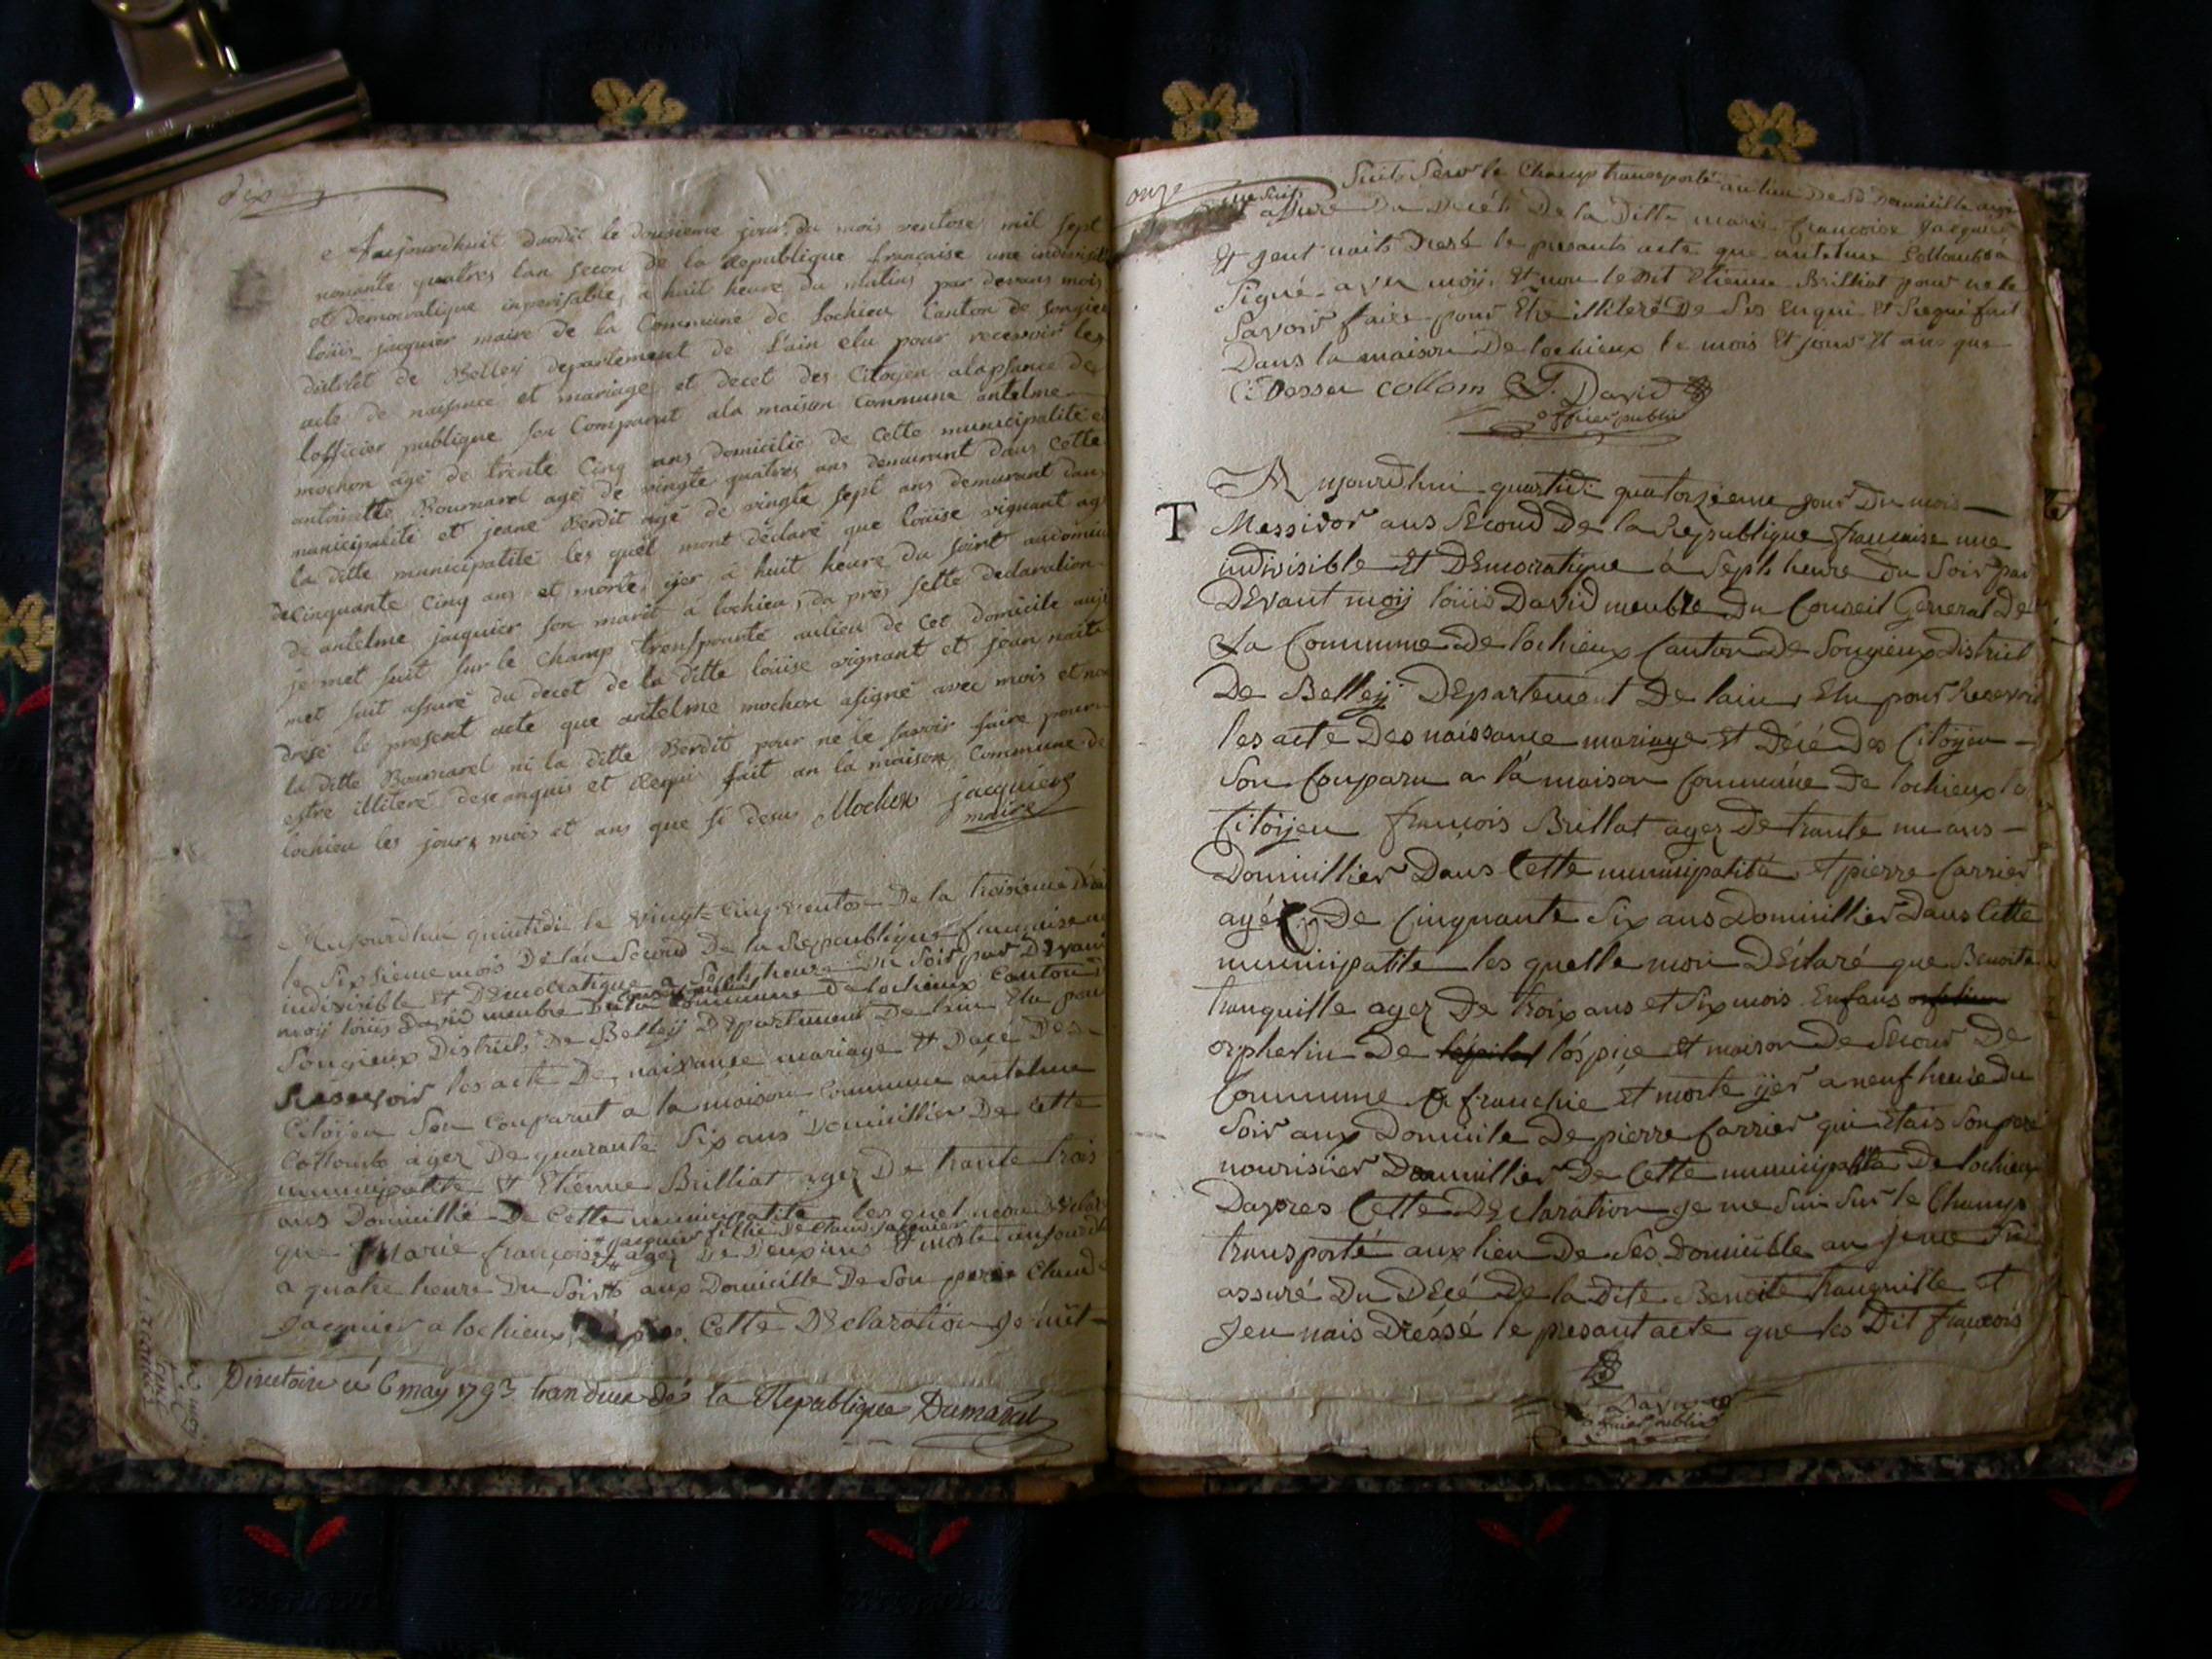 dix
Aujourdhuit duodit le dousieme jour du mois ventose mil sept
nonante quatres lan secon de la republique francaise une indivisible
et democratique inperisable, a huit heure du matins par devans mois
loüis jacquier maire de la Commune de lochieu canton de songieu
district de Belley departement de l'ain elu pour recevoir les
acte de naissance et mariage et decet des Citoyen alapsance de
lofficier publique son Comparut ala maison Commune antelme
mochon agé de trente Cinq ans domicilié de cette municipalité et
antoinette Bournarel agé de vingte quatres ans demurant dans cette
municipalité et jeane Berdit agé de vingte sept ans demurant dans
la ditte municipalité les quel mont déclaré que loüise vignant agé
de Cinquante Cinq ans et morte, ijer à huit heure du soirt audomici
de antelme jacquier son marit à lochieu, da prés sette declaration
je met suit sur le champ transpourté aulieu de cet domicile
met suit assuré du decet de la ditte loüise vignant et jean naite
drésé le present acte que antelme mochon asigné avec mois et non
la ditte Bournarel ni la ditte Berdit pour ne le savoir faire pour
estre illiteré desesanquis et sequi fait an la maison Commune de
lochieu les jours mois et ans que si desus Mochon jacquier
maire
Aujourdhui quintidi le vingt-Cinq ventose De la troisieme
le sixsieme mois De lan Second De la Republique francaise une
indivisible Et DEmocratique a Sept heure Du Soir par Devant
moij loüis David meubre Du Commune De lochieux Canton
Songieux District De Belleÿ DEpartement De lain Elu pour
Resevoir les acte De naissance mariage Et Decé Des
Citoijen Son Comparut a la maison Commune antelme
Collombe agez De quarante Six ans Domicillier De Cette
municipalité Et Etienne Brilliat agez De trante trois
ans Domicillié De Cette municipalité les quel mon Déclaré
jacquier fillie De Claude jacquier
que Marie françoise agez De Deux ans Et morte aujourdhui
a quatre heure Du Soir aux Domicille De Son perre Claude
Jacquier a lochieux Cette DEclaration je mit
Directoire ce 6 may 1793 lan deux de la Republique Dumarest
onze
me Suit Sur le Champ transporté au lieu De Domicille
assuré Du Decés De la Ditte marie francoise Jacquier
Et jent naits Dresé le presants acte que antelme Collombe a
Signé avec moij Et non le Dit Etienne Brilliat pour ne le
Savoir faire pour Etre illiteré De Ses Enqui Et Sequi fait
Dans la maison De lochieux le mois Et jour Et ans que
Ci Dessu collom David
officier public
T
Aujourdhui quartidi quatorzieme jour Du mois
Messidor ans Second De la Republique francaise une
indivisible Et DEmocratique à Sept heure du Soir par
DEvant moij loüis David meubre Du Conseil General De
La Commune De lochieux Canton De Songieux District
De Belleij DEpartement De lain, Elu pour Recevoir
les acte Des naissance mariage Et Décé Des Citoijen
Son Comparu a la maison Commune De lochieux le
Citoijen françois Brillat agez De trante un ans
Domicillier Dans Cette municipalité Et pierre Carrier
agés De Cinquante Six ans Domicillier Dans Cette
municipalité les quelle mon DEclaré que Benoite
tranquille agez De troix ans et Six mois Enfans
orphelin De l'óspice et maison De Secour De
Commune franchie Et morte ijer a neuf heure Du
Soir aux Domicile De pierre Carrier qui Etais Son pere
nourisier Domicillier De Cette municipalité De lochieux
Dapres Cette DEclaration je me Suis Sur le Champ
transporté aux lieu De Ses Domicille an je me Suis
assuré Du DEcé De la Dite Benoite tranquille et
Jen nais Dréssé le presant acte que les Dit françois
David
officier public